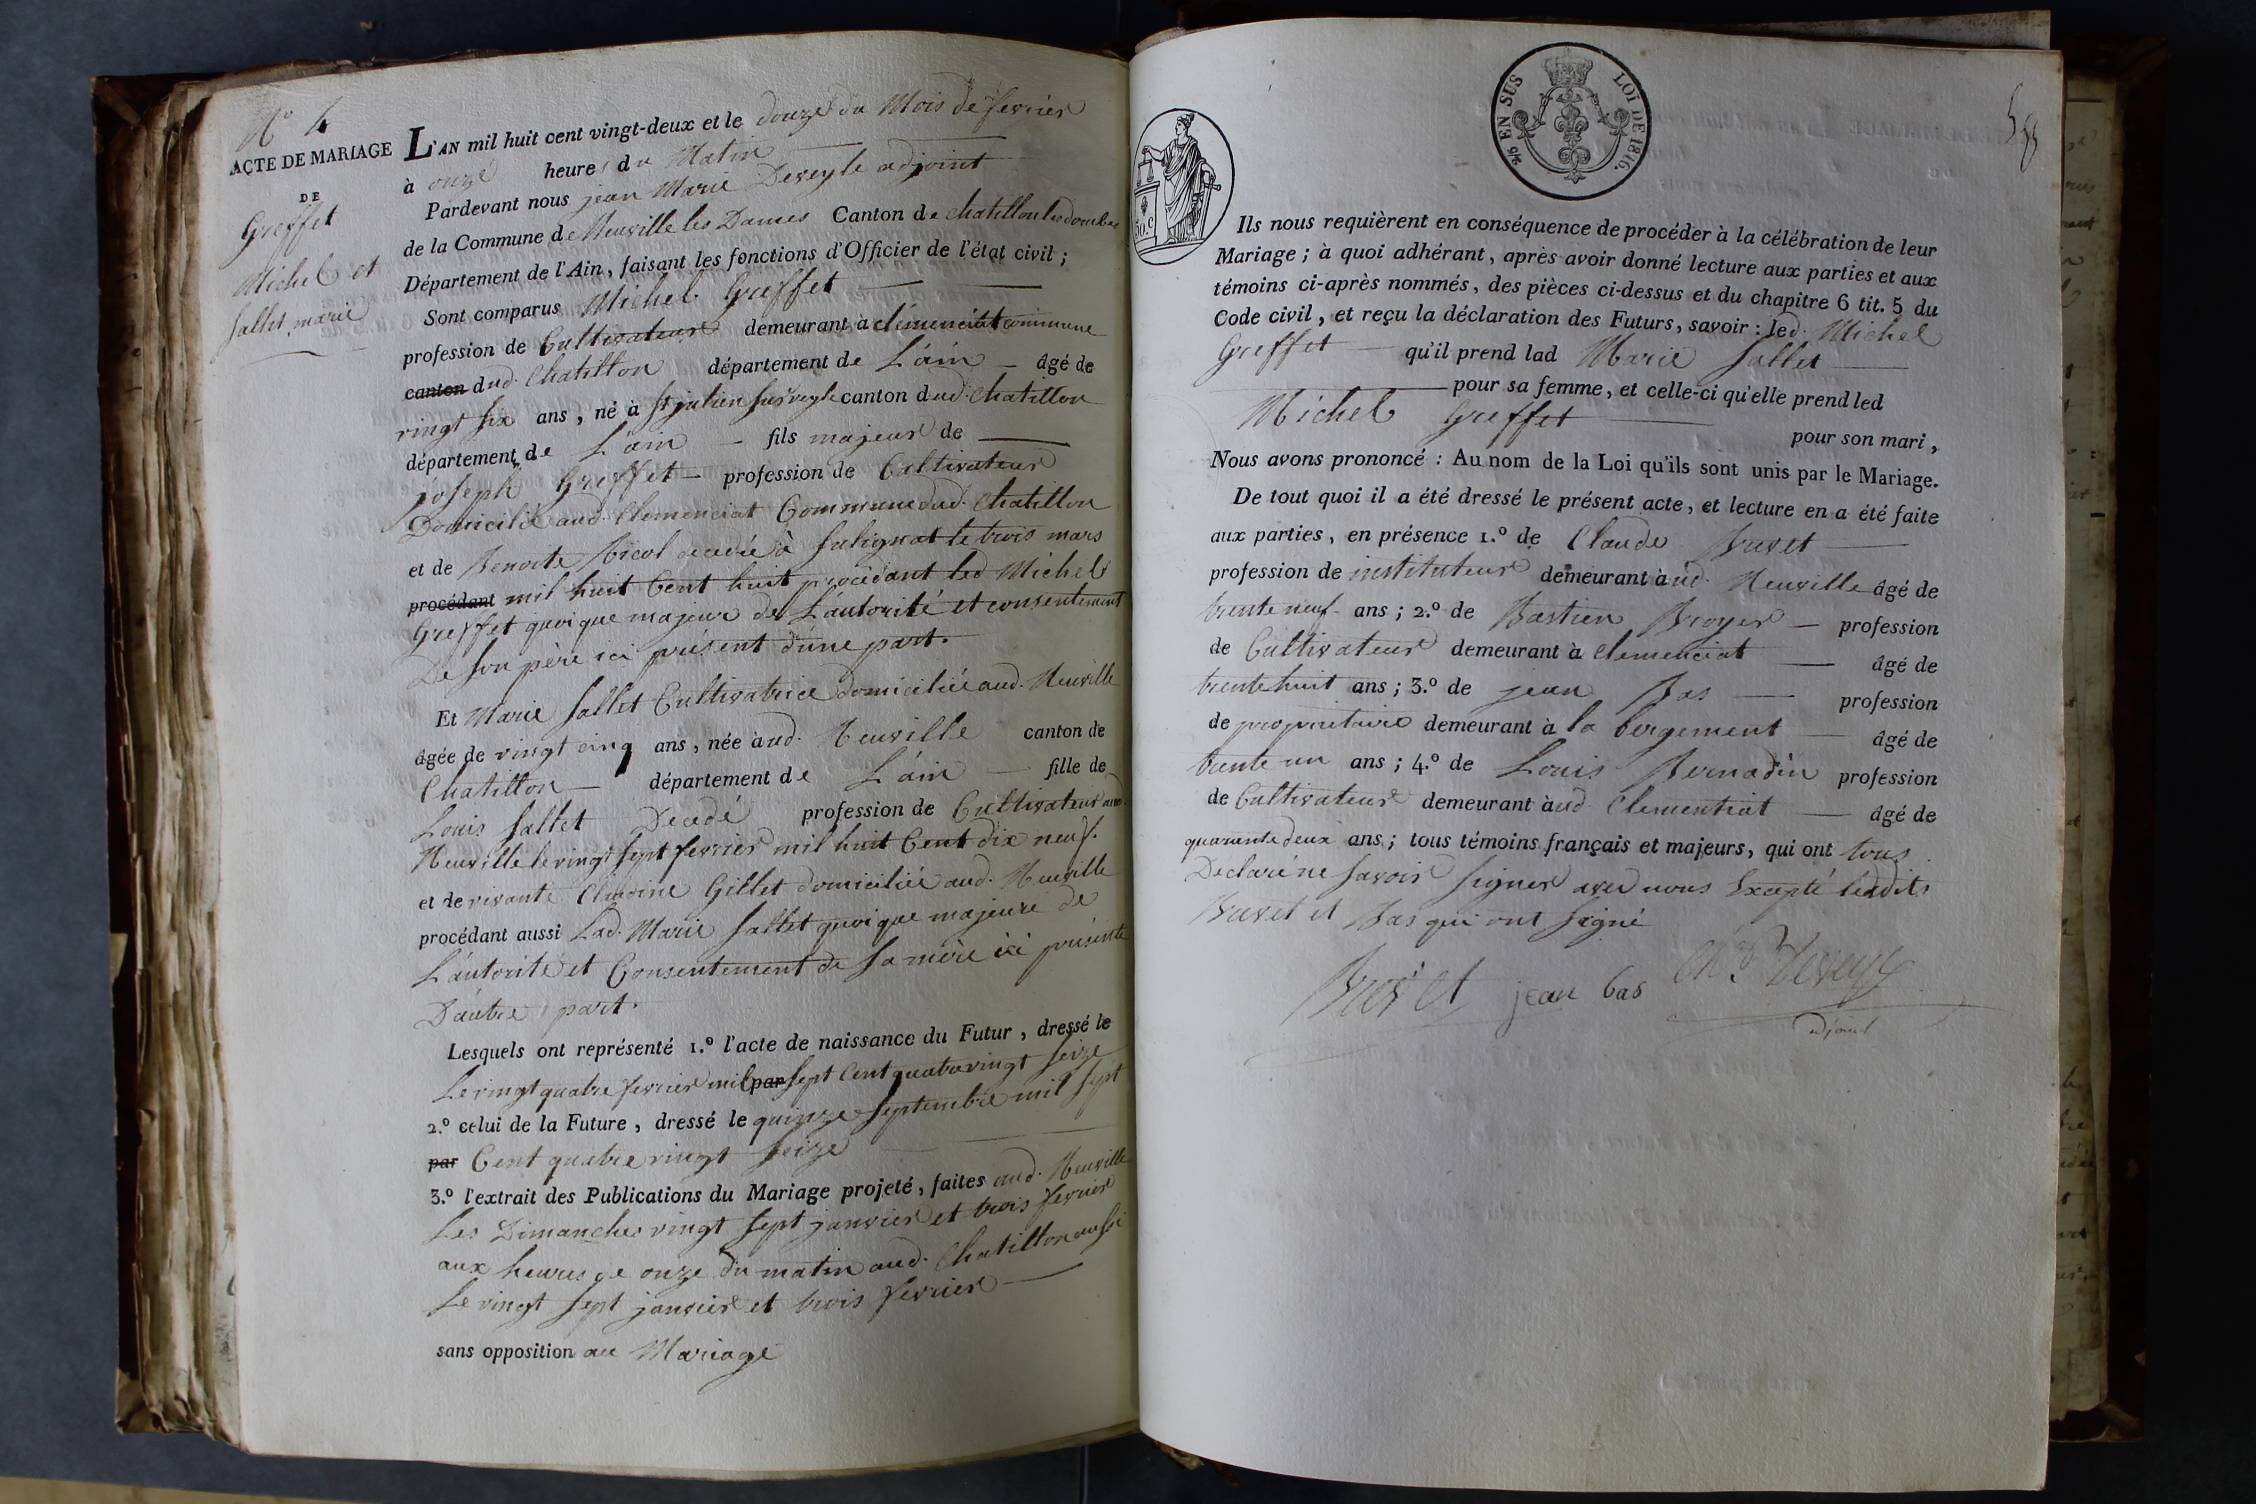 N° 4
ACTE DE MARIAGE
DE
Greffet
Michel et
Sallet marie
L'AN mil huit cent vingt-deux et le douze du Mois de fevrier
à onze heures du Matin
Pardevant nous jean Marie Deveyle adjoint
de la Commune de Neuville les Dames Canton de Chatillon les dombes
Département de l'Ain, faisant les fonctions d'Officier de l'état civil ;
Sont comparus Michel Greffet
profession de Cultivateur demeurant à clémenciat commune
canton dud. Chatillon département de L'ain âgé de
vingt six ans, né à St julien sur veyle canton dud. Chatillon
département de L'ain fils majeur de
joseph Greffet profession de Cultivateur
Domicilié aud. Clemenciat Commune dud. Chatillon
et de Benoite Nicol decedée à Sulignat le trois mars
procédant mil huit Cent huit procédant led Michel
Greffet quoique majeur de L'autorité et consentement
De son père ici présent d'une part.
Et Marie Sallet Cultivatrice domiciliée aud. Neuville
âgée de vingt cinq ans, née àud. Neuville canton de
Chatillon département de L'ain fille de
Louis Sallet Decedé profession de Cultivateur aud.
Neuville le vingt sept fevrier mil huit Cent dix neuf.
et de vivante Claudine Gillet domiciliée aud. Neuville
procédant aussi Lad. Marie Sallet quoique majeure de
L'autorité et Consentement de sa mère ici présente
D'autre part.
Lesquels ont représenté 1.° l'acte de naissance du Futur, dressé le
Le vingt quatre fevrier mil par sept Cent quatre vingt seize
2.° celui de la Future, dressé le quinze septembre mil sept
par Cent quatre vingt seize
3.° l'extrait des Publications du Mariage projeté, faites aud. Neuville
Les Dimanches vingt sept janvier et trois fevrier
aux heures de onze du matin aud. Chatillon aussi
Le vingt sept janvier et trois fevrier
sans opposition au Mariage
EN SUS LOI DE 1816.
50.C
Ils nous requièrent en conséquence de procéder à la célébration de leur
Mariage ; à quoi adhérant, après avoir donné lecture aux parties et aux
témoins ci-après nommés, des pièces ci-dessus et du chapitre 6 tit. 5 du
Code civil, et reçu la déclaration des Futurs, savoir : led. Michel
Greffet qu'il prend lad Marie Sallet
pour sa femme, et celle-ci qu'elle prend led
Michel Greffet
pour son mari,
Nous avons prononcé : Au nom de la Loi qu'ils sont unis par le Mariage.
De tout quoi il a été dressé le présent acte, et lecture en a été faite
aux parties, en présence 1.° de Claude Buvet
profession de instituteur demeurant àud. Neuville âgé de
trente neuf ans ; 2.° de Bastien Broyer profession
de Cultivateur demeurant à Clemenciat âgé de
trente huit ans ; 3.° de jean Bas profession
de proprietaire demeurant à la bergement âgé de
trente un ans ; 4.° de Louis Bernadin profession
de Cultivateur demeurant àud Clementiat âgé de
quarante deux ans ; tous témoins français et majeurs, qui ont tous
Declaré ne savoir signer avec nous Excepté lesdits
Buvet et Bas qui ont signé
jean bas
adjoint